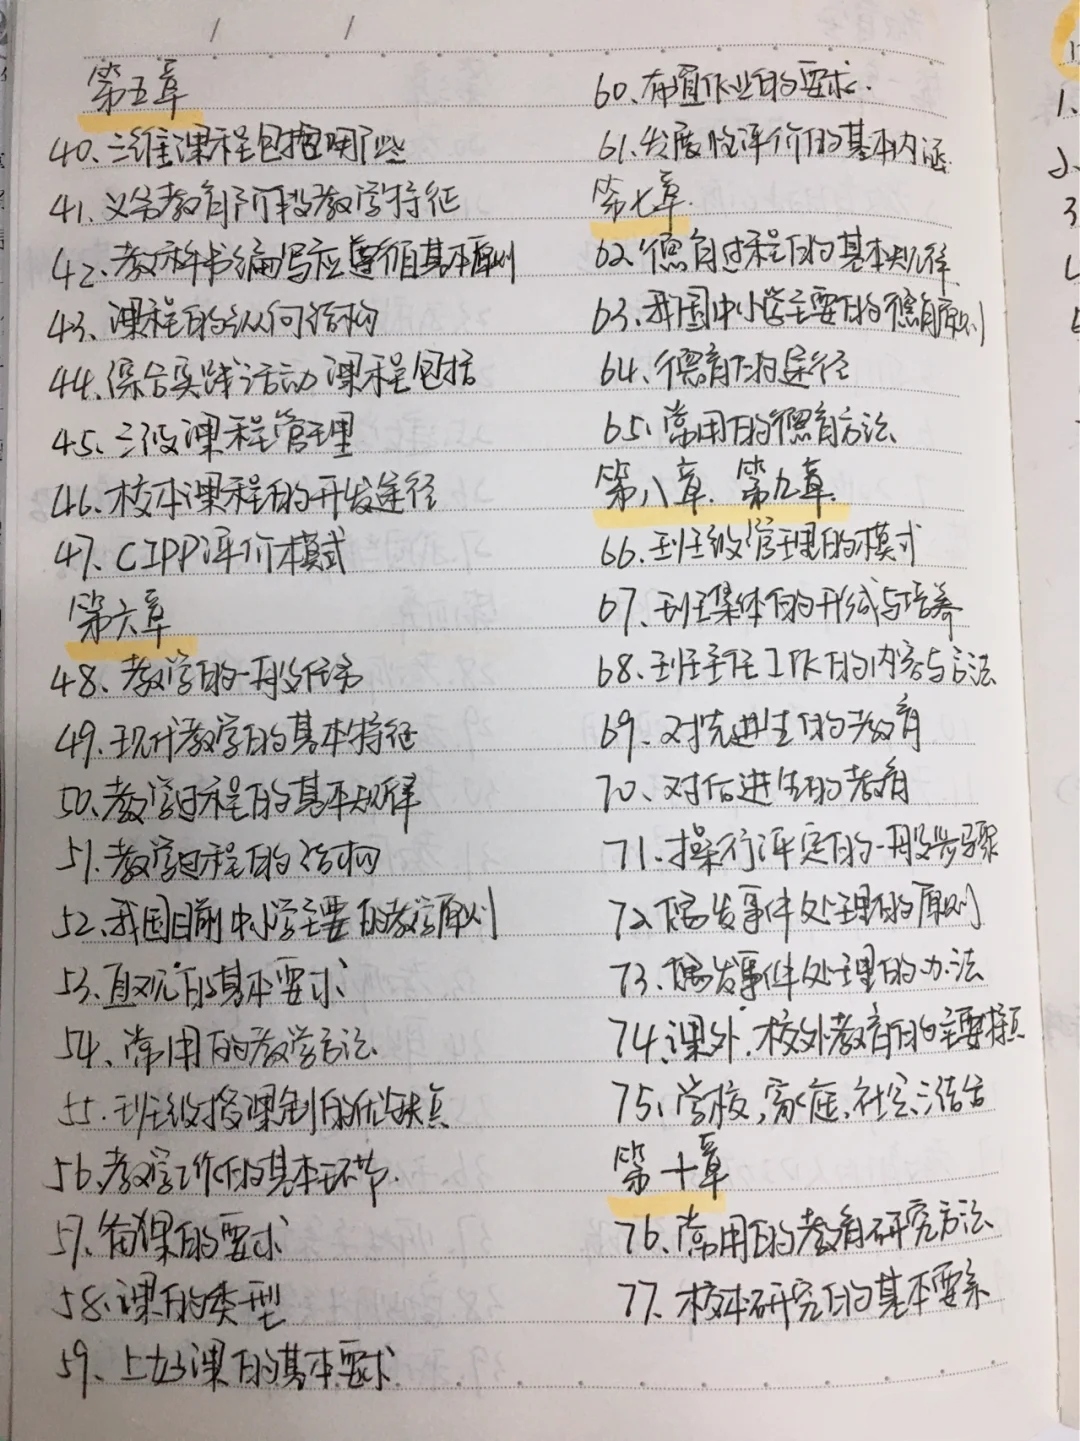 第五章
40、三维课程包括哪些
41、义务教育阶段教学特征
42、教科书编写应遵循基本原则
43、课程的纵向结构
44、综合实践活动课程包括
45、三级课程管理
46、校本课程的开发途径
47、CIPP评价模式
第六章
48、教学的一般任务
49、现代教学的基本特征
50、教学过程的基本规律
51、教学过程的结构
52、我国目前中小学主要的教学原则
53、直观的基本要求
54、常用的教学方法
55、班级授课制的优缺点
56、教学工作的基本环节.
57、备课的要求
58、课的类型
59、上好课的基本要求
60、布置作业的要求.
61、发展性评价的基本内涵
第七章
62、德育过程的基本规律
63、我国中小学主要的德育原则
64、德育的途径
65、常用的德育方法
第八章、第九章
66、班级管理的模式
67、班集体的形成与培养
68、班主任工作的内容与方法
69、对先进生的教育
70、对后进生的教育
71、操行评定的一般步骤
72、偶发事件处理的原则
73、偶发事件处理的办法
74、课外、校外教育的主要特点
75、学校、家庭、社会三结合
第十章
76、常用的教育研究方法
77、校本研究的基本要素
1.
3